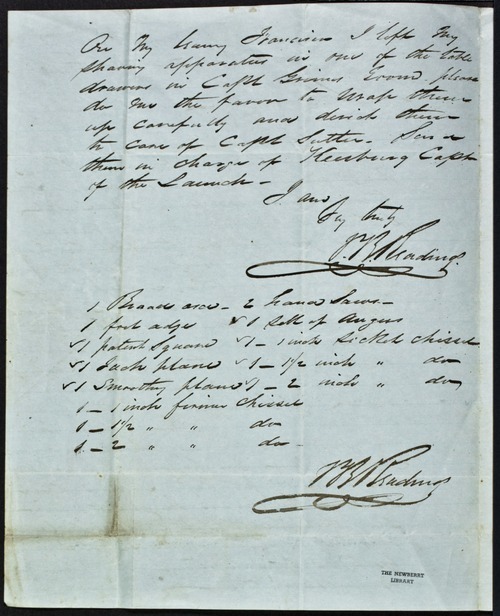 On My leaving Francisco I left My
shaving apparatus in one of the table
drawers in Capt Grimes Room please
do Me the favor to wrap them
up carefully and direct them
to care of Capt Sutter. Send
them in charge of Heuburg Capt
of the Launch -
I am
Try truly
P. B. Reading.
1 Broad axe - 2 hand Saws -
1 foot adze √1 Sett of Augurs
√1 patent Square √1 - 1 inch Socket Chissel
√1 Jack plane √1 - 1 1/2 inch " do
√1 Smoothg plane √1 - 2 inch " do
1 - 1 inch firmer Chissel
1 - 1 1/2 " " do
1 - 2 " " do -
P B Reading
THE NEWBERRY
LIBRARY